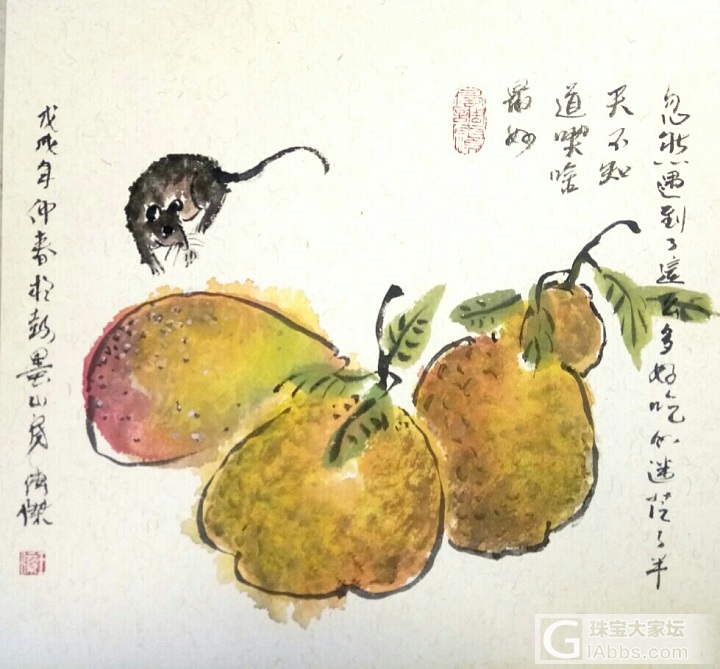 忽然遇到了這么多好吃的迷茫了半
天不知
道喫啥
最妙
戊戌年仲春於墨山房 傑
珠宝大家坛
GIAbbs.com